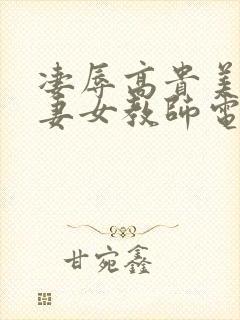 凌辱高貴美
妻女教師電
甘宛鑫